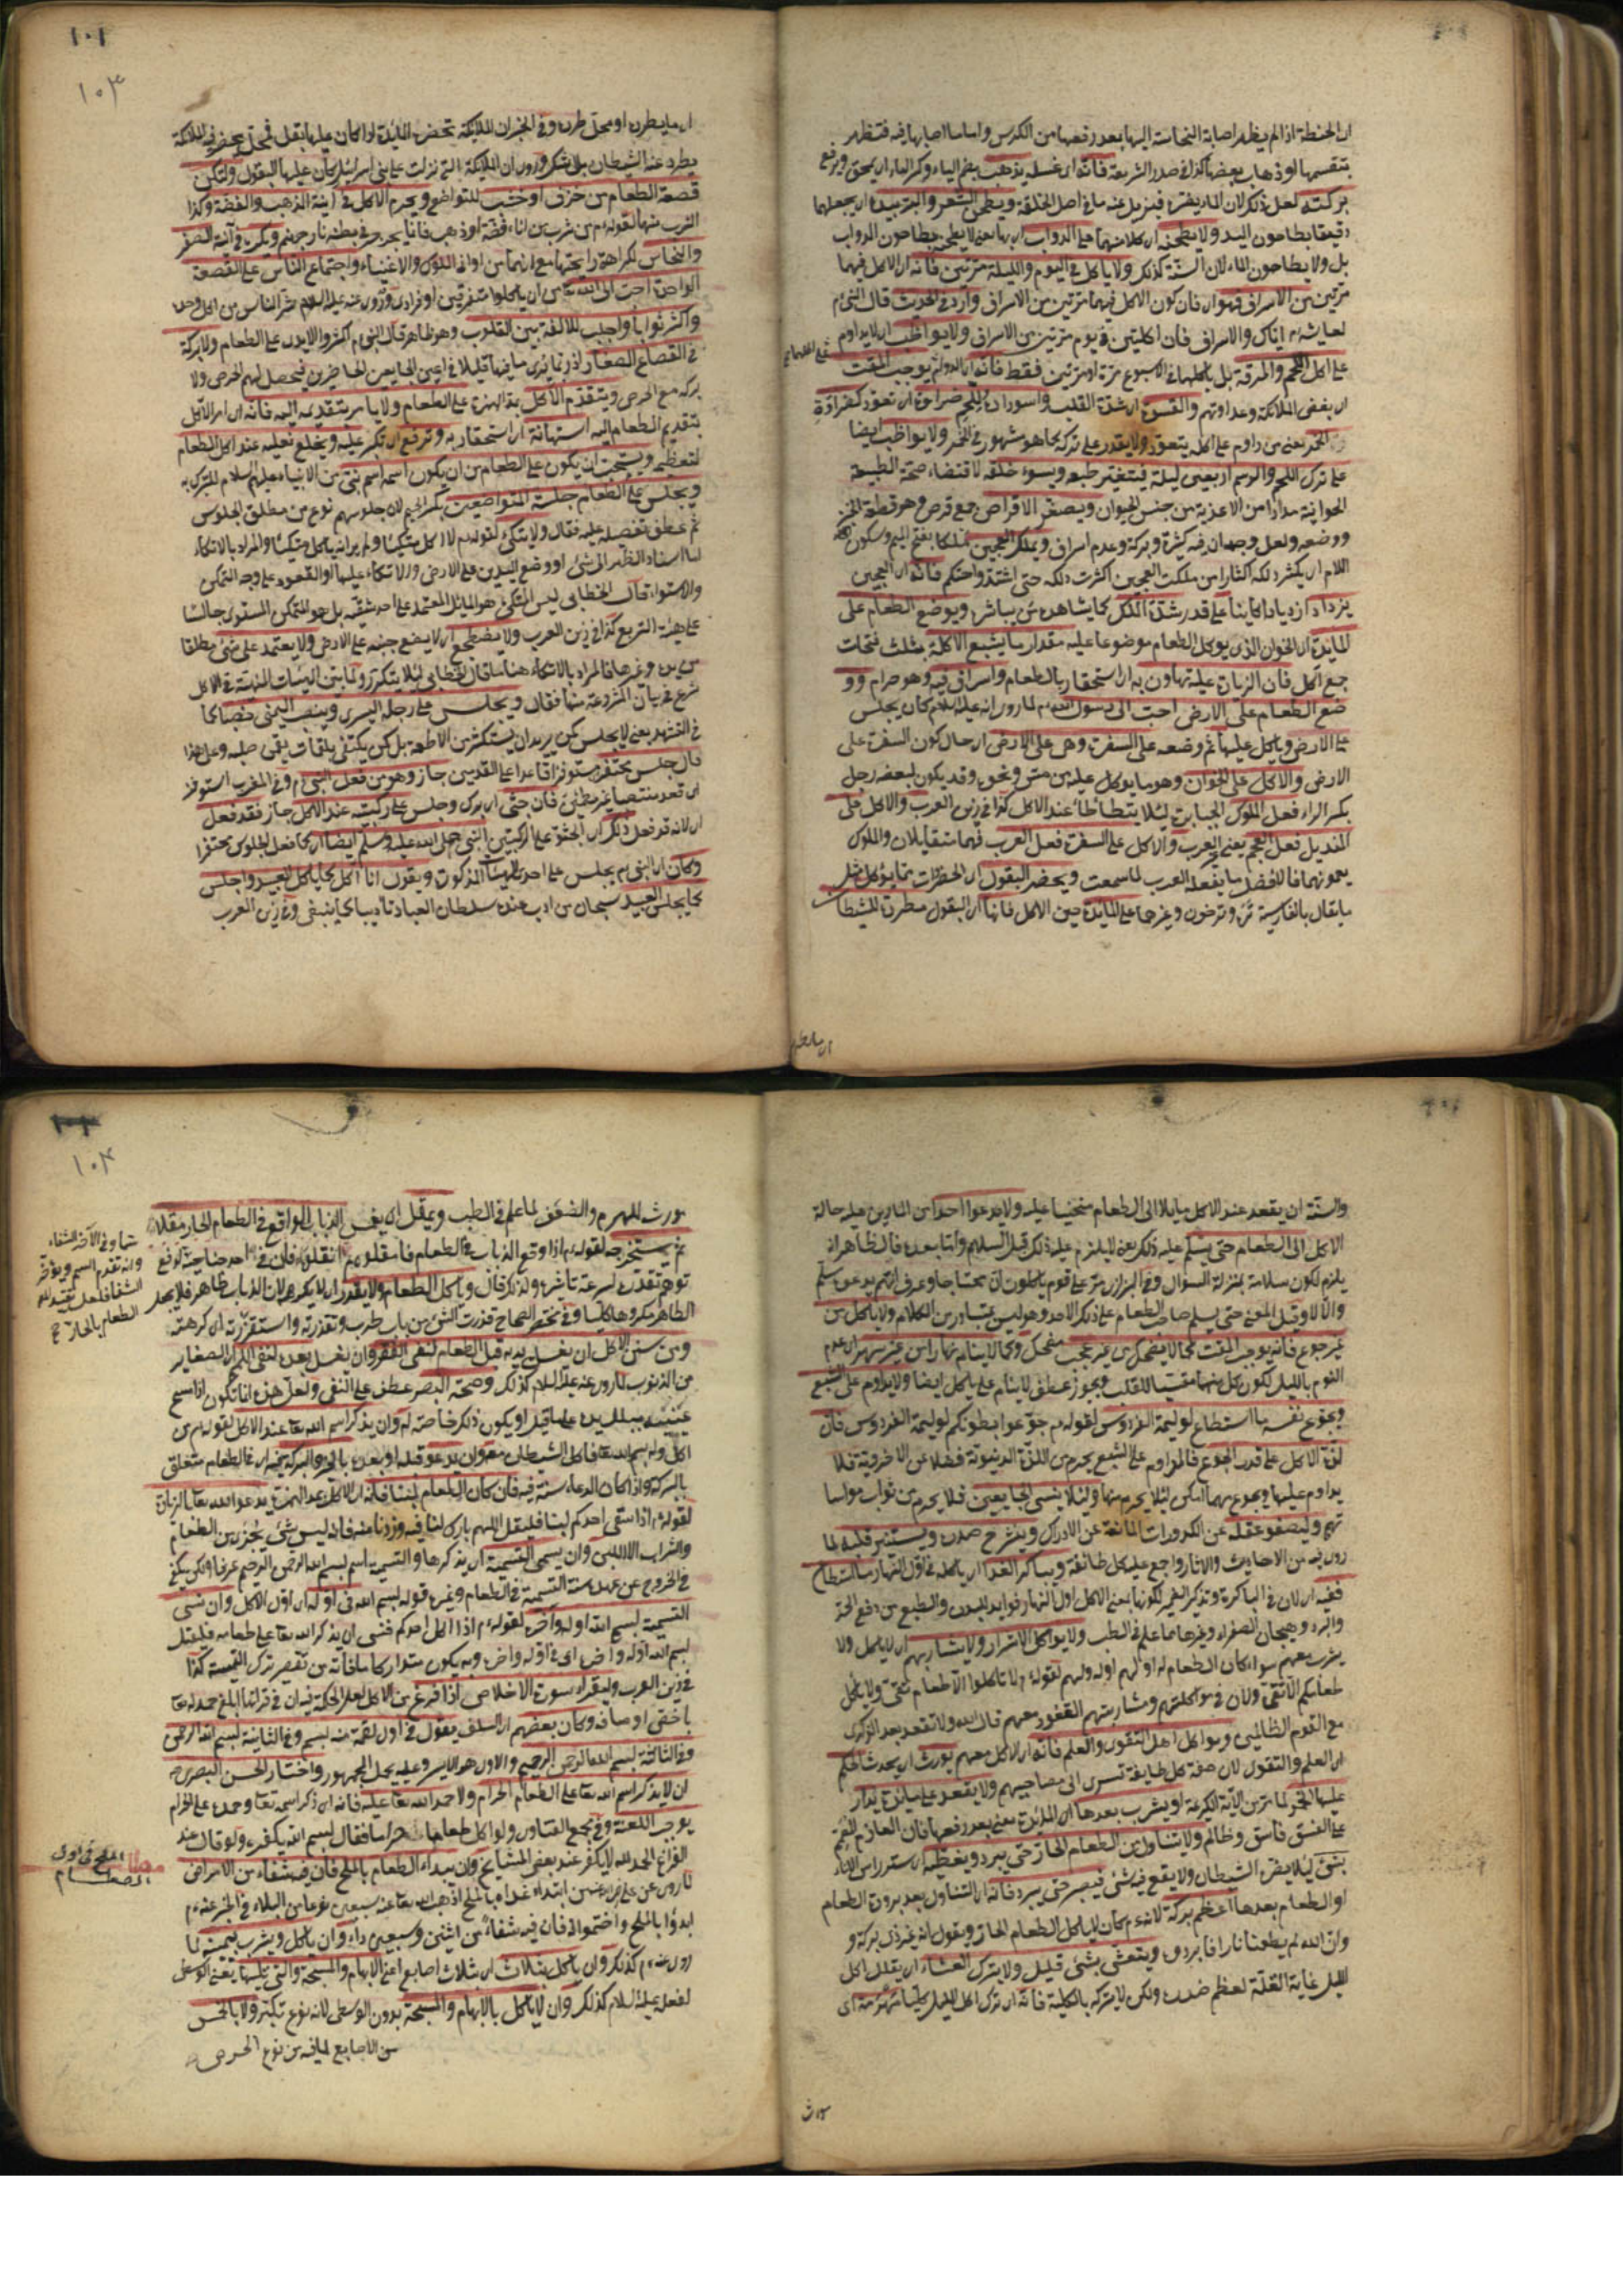 ان الحنطة اذا لم يظهر اصابة النجاسة اليها بعد رفعها من الكدس واساسا اصابها فيه فتطهر
بركته لعل ذلك لان الماء يضره فيزيل عنه ما في اصل الخلقة ويطحن الشعير والبر بيده اي يجعلهما
دقيقا بطاحون اليد ولا يطحنه اي كلا منهما على الدواب اي بها يعني لا يطحن بطاحون الدواب
بل ولا بطاحون الماء لان السنة كذلك ولا ياكل في اليوم والليلة مرتين فانه اي الاكل فيهما
مرتين من الاسراف فهو اي فان كون الاكل فيهما مرتين من الاسراف وارد في الحديث قال النبي م
لعايشة م اياك والاسراف فان اكلتين في يوم مرتين من الاسراف ولا يواظب اي لا يداوم
على اكل اللحم والمرقة بل ياكلهما في الاسبوع مرة او مرتين فقط فانه اي الدوام يوجب المقت
على ترك اللحم والدسم اربعين ليلة فيتغير طبعه ويسوء خلقه لاقتضاء صحة الطبيعة
الحوانية مددا من الاغذية من جنس الحيوان ويصغر الاقراص جمع قرص وهو قطعة الخبز
يزداد ازديادا كاينا على قدر شدة الملك كما يشاهده من يباشره ويوضع الطعام على
المايدة اي الخوان الذي يوكل الطعام موضوعا عليه مقدار ما يشبع الاكلة بثلث فتحات
جمع آكل فان الزيادة عليه تهاون به اي استحقار بالطعام واسراف فيه وهو حرام وو
ضع الطعام على الارض احب الى رسول الله م لما روي انه عليه السلام كان يجلس
على الارض وياكل عليها ثم وضعه على السفرة وهي على الارض اي حال كون السفرة على
الارض والاكل على الخوان وهو ما يوكل عليه من خشب ونحوه وقد يكون لبعضه رجل
بكسر الراء فعل الملوك الجبابرة لئلا يتطأطأ عند الاكل كذا في زين العرب والاكل على
المنديل فعل العجم يعني غير العرب والاكل على السفرة فعل العرب فهما متقابلان والملوك
يعمونهما فالافضل ما يفعله العرب لما سمعت ويحضر البقول اي الخضرات مما يؤكل مثل
ما يقال بالفارسية تره وترخون وغيرها على المايدة حين الاكل فانها اي البقول مطردة للشيطان
١٠١
١٠٣
يطرد عنه الشيطان بلا شك وروي ان المايدة التي نزلت على بني اسرائيل كان عليها البقول ولتكن
قصعة الطعام من خزف او خشب للتواضع ويحرم الاكل في آنية الذهب والفضة وكذا
الشرب منها لقوله م من شرب من اناء فضة او ذهب فانما يجرجر في بطنه نار جهنم ويكره في آنية الصفر
والنحاس لكراهة رايحتها مع انهما من اواني الملوك والاغنياء واجتماع الناس على القصعة
الواحدة احب الى الله تعالى من ان ياكلوا متفرقين او فرادى وروي عنه عليه السلام شر الناس من اكل وحده
واكثر ثوابا واجلب للالفة بين القلوب وهو ظاهر قال النبي م اكثروا الايدي على الطعام ولا بركة
في القصاع الصغار اذ ربما يرى ما فيها قليلا في اعين الجايعين الحاضرين فيحصل لهم الحرص ولا
بركة مع الحرص ويتقدم الاكل بمد الهمزة على الطعام ولا يامر بتقديمه اليه فانه اي امر الاكل
بتقديم الطعام اليه استهانة اي استحقار به وترفع اي تكبر عليه ويخلع نعليه عند اكل الطعام
لتعظيمه ويستحب ان يكون على الطعام من ان يكون اسمه اسم نبي من الانبياء عليهم السلام للتبرك به
ويجلس على الطعام جلسة المتواضعين بكسر الجيم لان جلوسهم نوع من مطلق الجلوس
ثم عطف تفصيله عليه فقال ولا يتكئ لقوله م لا آكل متكئا ولم ير انه ياكل متكئا والمراد بالاتكاء
اما اسناد الظهر الى شئ او وضع اليدين على الارض والاتكاء عليها او القعود على وجه التمكن
والاستواء قال الخطابي ليس المتكئ هو المائل المعتمد على احد شقيه بل هو المتمكن المستوي جالسا
على هيئة التربع كذا في زين العرب ولا يضطجع اي لا يضع جنبه على الارض ولا يعتمد على شئ مطلقا
شرع في بيان المشروعة منها فقال ويجلس على رجله اليسرى وينصب اليمنى
في التشهد يعني لا يجلس كمن يريد ان يستكثر من الاطعمة بل كمن يكتفي بلقمات يقمن صلبه وعلى هذا
فان جلس محتفزا مستوفزا قاعدا على القدمين جاز وهو من فعل النبي م وفي المغرب استوفز
اي قعد منتصبا غير مطمئن فان جثى اي برك وجلس على ركبتيه عند الاكل جاز فقد فعل
وكان اي النبي م يجلس على احدى الهيئات المذكورة ويقول انا آكل كما ياكل العبيد واجلس
كما يجلس العبيد سبحان من ادب عنده سلطان العباد تاديبا كما ينبغي وفي زين العرب
والسنة ان يقعد عند الاكل مايلا الى الطعام منحنيا عليه ولا يدعوا احدا من المارين عليه حالة
الاكل الى الطعام حتى يسلم عليه ذلك يعني لا يلزم عليه ذلك قبل السلام واما بعده فالظاهر انه
يلزم لكون سلامه بمنزلة السؤال وفي البزازي مر على قوم ياكلون ان محتاجا وعرف انهم يدعونه سلم
والا لا
غير جوع فانه يوجب المقت كما لا يضحك من غير عجب مضحك وكما لا ينام نهارا من غير سهر اي عدم
النوم بالليل لكون كل منهما مقسيا للقلب ويجوز عطف لا ينام على ياكل ايضا ولا يداوم على الشبع
ويجوع نفسه ما استطاع لوليمة الفردوس لقوله م جوعوا بطونكم لوليمة الفردوس فان
لذة الاكل على قدر الجوع فالمداوم على الشبع يحرم من اللذة الدنيوية فضلا عن الاخروية فلا
يداوم عليها ويجوع مهما امكن لئلا يحرم منها ولئلا ينسى الجايعين فلا يحرم من ثواب مواسا
تهم وليصفو عقله عن الكدورات المانعة عن الادراك وينشرح صدره ويستنير قلبه لما
روي فيه من الاحاديث والاثار واجمع عليه كل طائفة ويباكر الغداء اي ياكله في اول النهار ما استطاع
ففيه اي لان في الباكرة وتذكير الضمير لكونها بمعنى الاكل اول النهار فوايد للبدن والطبع من دفع الحر
والبرد وهيجان الصفراء وغيرها مما علم في الطب ولا يواكل الاشرار ولا يشاربهم اي لا ياكل ولا
يشرب معهم سواء كان الطعام له او لهم او له ولهم لقوله م لا تاكلوا الا طعام تقي ولا ياكل
طعامكم الا تقي ولان في مواكلتهم ومشاربتهم القعود معهم قال الله ولا تقعد بعد الذكرى
مع القوم الظالمين ويواكل اهل التقوى والعلم فانه اي الاكل معهم يورث
اي العلم والتقوى لان صفة كل طايفة تسري الى مصاحبيهم ولا يقعد على مايدة يدار
عليها الخمر لما مر من الآية الكريمة او يشرب بعدها اي المايدة يعني بعد رفعها فان العازم
على الفسق فاسق وظالم ولا يتناول من الطعام الحار حتى يبرد ويغطيه اي يستر راس الاناء
بشئ لئلا يضره الشيطان ولا يقع فيه شئ فيصبر حتى يبرد فانه اي التناول بعد برودة الطعام
او الطعام بعدها اعظم بركة لانه م كان لا ياكل الطعام الحار ويقول انه غير ذي بركة و
وان الله لم يطعمنا نارا فابردوه ويتعشى بشئ قليل ولا يترك العشاء اي يقلل اكل
الليل غاية القلة لعظم ضرره ولكن لا يتركه بالكلية فانه اي ترك اكل الليل كليا مهرمة اي
١٠٤
يورث للهرم والضعف لما علم في الطب ويمقل اي يغمس الذباب الواقع في الطعام الحار مقلا
ثم يستخرجه لقوله م اذا وقع الذباب في الطعام فامقلوه ثم انقلوه فان في احد جناحيه
الطاهر مكروها كليا وفي مختصر الصحاح قذرت الشئ من باب طرب وتقذرته واستقذرته اي كرهته
ومن سنن الاكل ان يغسل يديه قبل الطعام لنفي الفقر وان يغسل بعده لنفي اللمم اي الصغاير
من الذنوب لما روي عنه عليه السلام كذلك وصحة البصر عطف على النفي ولعل هذه انما تكون اذا مسح
بالبركة واذا كان الدعاء سنة فيه فان كان الطعام لبنا فانه اي الاكل بمد الهمزة يدعو الله تعالى بالزيادة
لقوله م اذا سقي احدكم لبنا فليقل اللهم بارك لنا فيه وزدنا منه فانه ليس شئ يجزئ من الطعام
والشراب الا اللبن وان يسمي التسمية اي يذكرها والتسمية اسم لبسم الله الرحمن الرحيم عرفا ولكن يكفي
في الخروج عن عهدة سنة التسمية في الطعام وغيره قوله بسم الله في اوله اي اول الاكل وان نسي
التسمية بسم الله اوله وآخره لقوله م اذا اكل احدكم فنسي ان يذكر الله تعالى على طعامه فليقل
بسم الله اوله وآخره اي في اوله وآخره وبه يكون متداركا ما فاته من تقصير ترك التسمية كذا
في زين العرب وليقرا سورة الاخلاص اذا فرغ من الاكل لعل الحكمة فيه ان في قرائتها ابلغ حمد لله تعالى
باخص اوصافه وكان بعضهم اي السلف يقول في اول لقمة منه بسم وفي الثانية بسم الله الرحمن
وفي الثالثة بسم الله الرحمن الرحيم والاول هو الايسر وعليه عمل الجمهور واختار الحسن البصري رح
ان لا يذكر اسم الله تعالى على الطعام الحرام ولا حمد الله تعالى عليه فانه اي ذكر اسمه تعالى وحمده على الحرام
يوجب اللعنة وفي مجمع الفتاوى ولو اكل طعاما حراما فقال بسم الله يكفر ولو قال عند
الفراغ الحمد لله لا يكفر عند بعض المشايخ وان يبداء الطعام بالملح فان فيه شفاء من الامراض
لما روي عن علي رضي الله عنه من ابتداء غداه بالملح اذهب الله تعالى عنه سبعين نوعا من البلاء وفي الخبر عنه م
ابدؤا بالملح واختموا به فان فيه شفاء من اثنين وسبعين داء وان ياكل ويشرب بيمينه لما
روي عنه م كذلك وان ياكل بثلاث اي بثلاث اصابع اعني الابهام والمسبحة والتي تليها يعني الوسطى
لفعله عليه السلام كذلك وان لا ياكل بالابهام والمسبحة بدون الوسطى لانه نوع تكبر ولا بالخمس
من الاصابع لما فيه من نوع الحرص